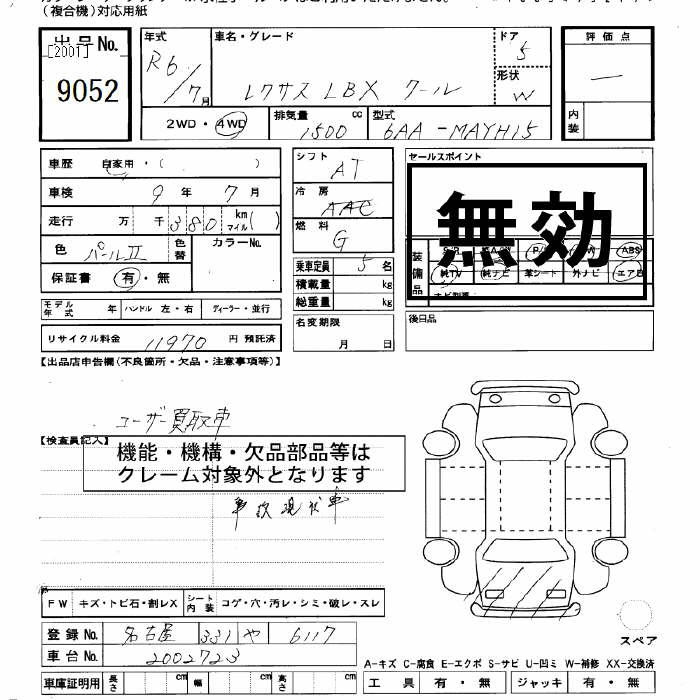 (複合機)対応用紙
出品No.
[2001]
9052
年式
R6/7月
車名・グレード
レクサス LBX クール
ドア
5
形状
W
2WD・4WD
排気量
1500
cc
型式
6AA-MAYH15
評価点
―
内装
車歴
自家用・( )
車検
9年7月
走行
万 千 380 km マイル( )
色
パールⅡ
色替
カラーNo.
保証書
有・無
モデル年式
年
ハンドル 左・右
ディーラー・並行
リサイクル料金
11970
円 預託済
シフト
AT
冷房
AAC
燃料
G
乗車定員
5名
積載量
kg
総重量
kg
名変期限
月 日
セールスポイント
無効
装備品
ABS
純TV
純ナビ
革シート
外ナビ
エアB
後日品
【出品店申告欄(不良箇所・欠品・注意事項等)】
ユーザー買取車
【検査員記入】
機能・機構・欠品部品等は
クレーム対象外となります
事故現状車
FW
キズ・トビ石・割レX
シート内装
コゲ・穴・汚レ・シミ・破レ・スレ
登録No.
名古屋 331 や 6117
車台No.
2002723
車庫証明用
長さ
cm
幅
cm
高さ
cm
スペア
A-キズ C-腐食 E-エクボ S-サビ U-凹ミ W-補修 XX-交換済
工具
有・無
ジャッキ
有・無